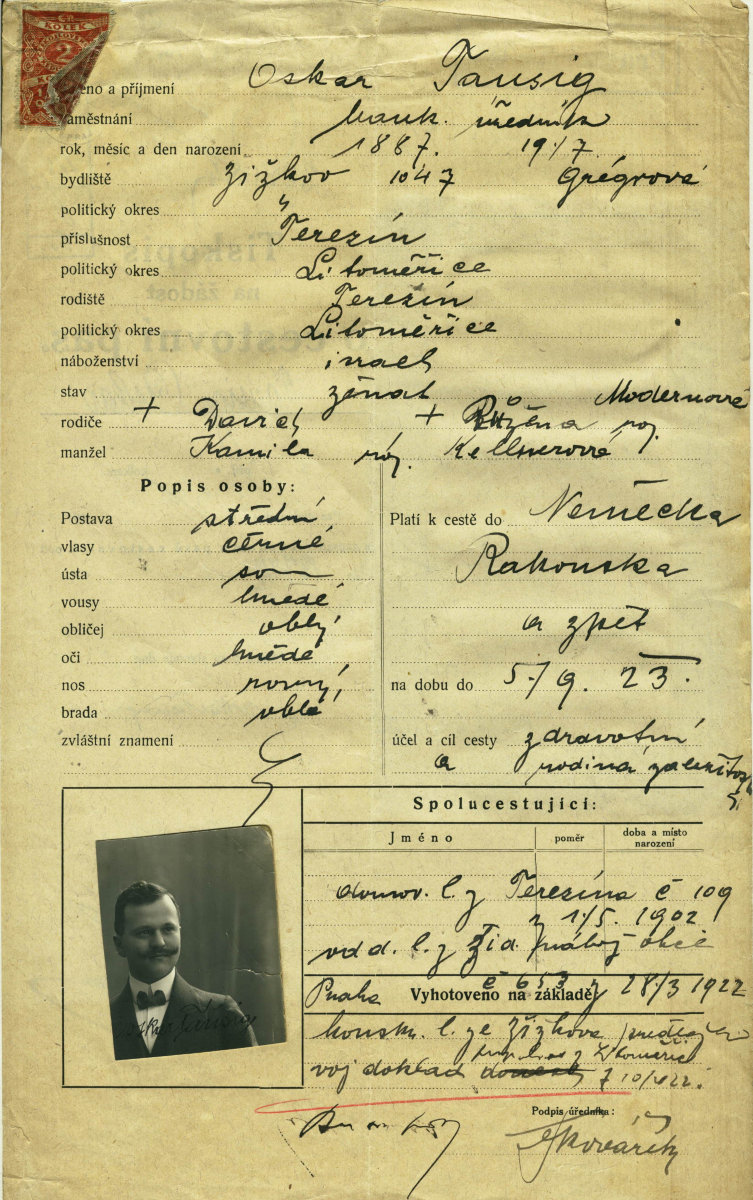 KOLEK
2
jméno a příjmení Oskar Tausig
zaměstnání bank. úředník
rok, měsíc a den narození 1887. 19./7.
bydliště Žižkov 1047 Grégrová
politický okres
příslušnost Terezín
politický okres Litoměřice
rodiště Terezín
politický okres Litoměřice
náboženství israel
stav ženat
Modernové
rodiče + David + Růžena roz.
manžel Kamila roz. Kellnerové
Popis osoby:
Postava střední
vlasy černé
ústa
vousy hnědé
obličej oblý
oči hnědé
nos rovný
brada oblá
zvláštní znamení
Platí k cestě do Německa
Rakouska
a zpět
na dobu do 5./9. 23.
účel a cíl cesty zdravotní
a rodiná záležitost
Spolucestující:
Jméno poměr doba a místo narození
domov. l. z Terezína č 109
z 1/5. 1902
č 653 z 28/3 1922
Praha Vyhotoveno na základě:
konskr. l. ze Žižkova
voj doklad z 10/4 22.
Podpis úředníka:
Kovářík
Oskar Tausig